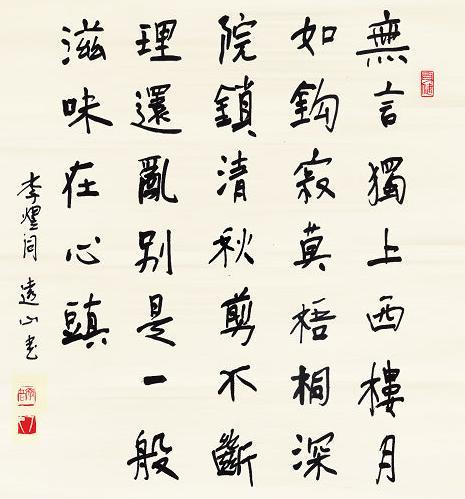 無言獨上西樓月
如鈎寂莫梧桐深
院鎖清秋剪不斷
理還亂別是一般
滋味在心頭
李煜词 遠山书